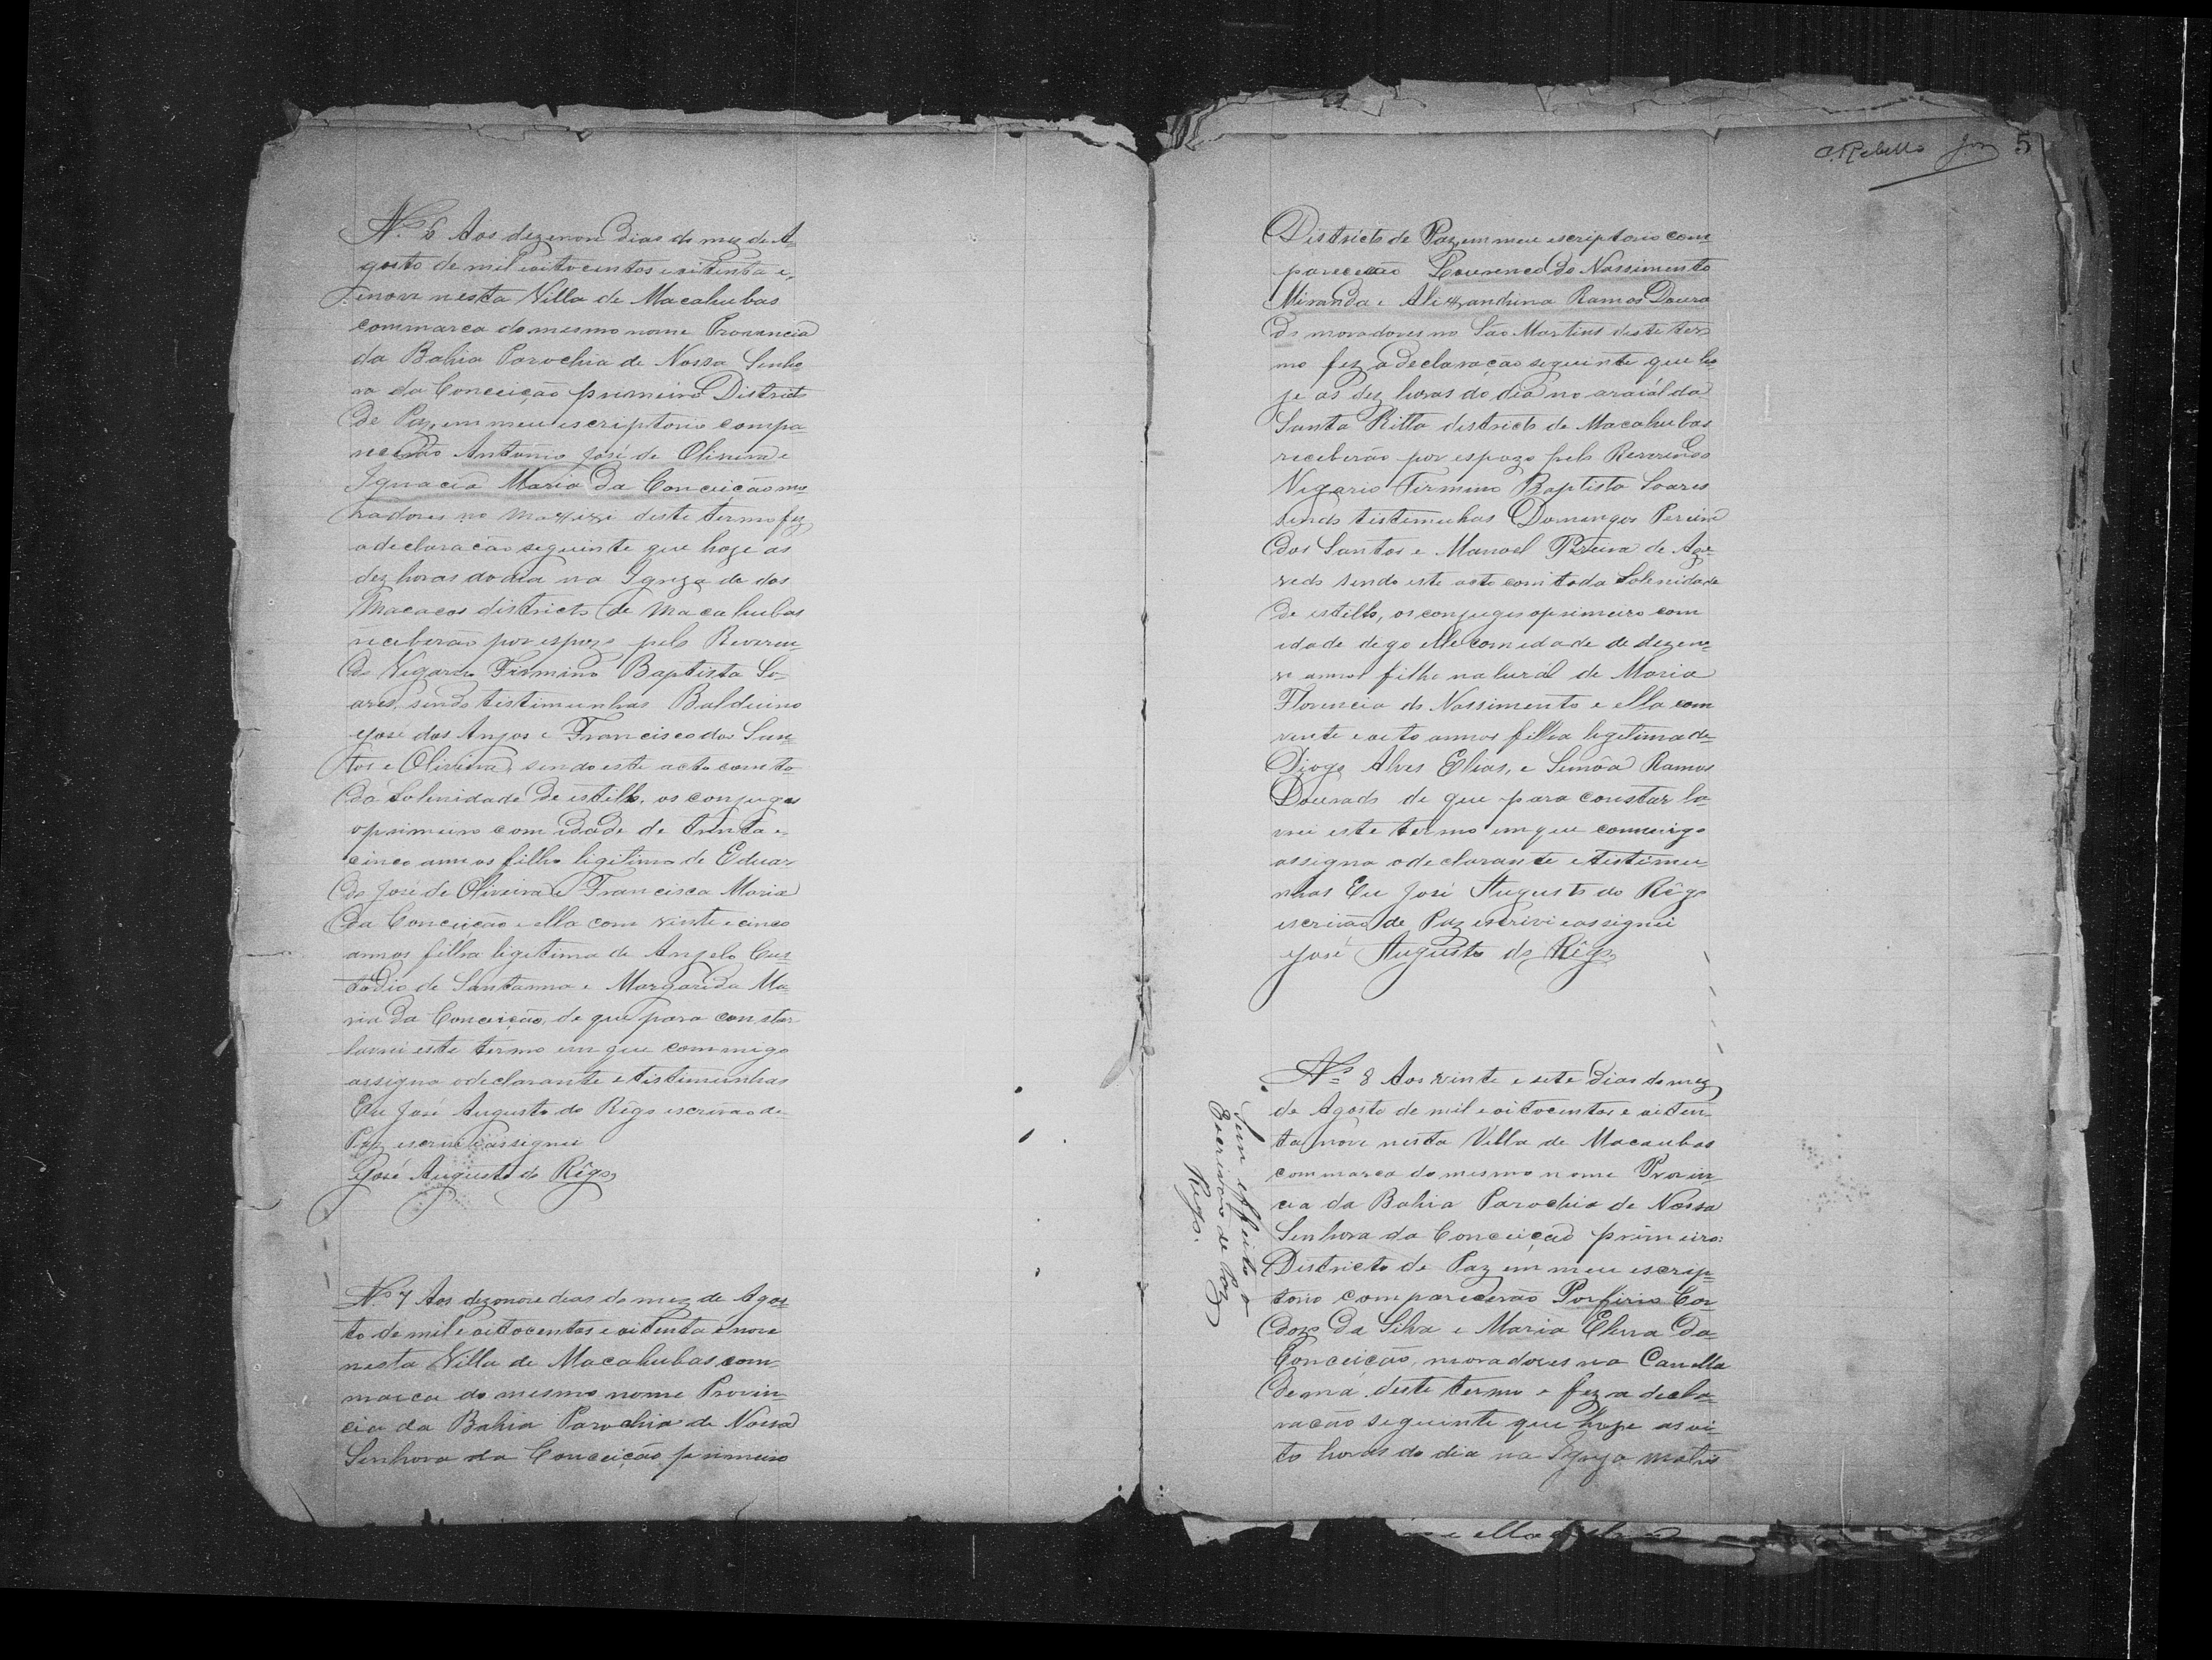 Nº 6 Aos dezenove dias do mez de A-
gosto de mil e oitocentos e oitenta e,
enove nesta Villa de Macahubas
commarca do mesmo nome Provancia
da Bahia Parochia de Nossa Senho
ra da Conceição primeiro Districto
de Paz, em meu escriptorio compa-
recerão Antonio José de Oliveira e
Ignacia Maria da Conceição mo
radores no deste termo fez
a declaração seguinte que hoje as
dez horas do dia na Igreza de dos
Macacos districto de Macahubas
receberão por espozo pelo Reveren-
do Vigario Firmino Baptista So-
ares, sendo tistimunhas Balduino
José dos Anjos e Francisco dos San-
tos e Oliveira, sendo este acto com to-
da Solenidade de estillo, os conjuges
o primeiro com idade de trinta e-
cinco annos filho ligitimo de Eduar
do José de Oliveira e Francisca Maria
da Conceição e ella com vinte e cinco
annos filha ligitima de Angelo Cus-
todio de Santanna e Margarida Ma-
ria da Conceição, de que para constar
lavrei este termo em que commigo
assigna o declarante e tistimunhas
Eu José Augusto do Rêgo escrivão de
Paz escrivi e assignei
José Augusto do Rêgo
Nº 7 Aos dezonove dias do mez de Agos-
to de mil e oitocentos e oitenta e nove
nesta Villa de Macahubas com-
marca do mesmo nome Provin-
cia da Bahia Parochia de Nossa
Senhora da Conceição primeiro
A. Rebello 5
Districto de Paz, em meu escriptorio com-
parecerão Lourenco do Nassimento
Miranda e Alixandrina Ramos Doura
do moradores no São Martins deste ter-
mo fez a declaração seguinte que ho-
je as dez horas do dia no araiál da
Santa Ritta districto de Macahubas
receberão por espozo pelo Reverendo
Vigario Firmino Baptista Soares
sendo tistimunhas Domingos Pereira
dos Santos e Manoel Pereira de Aze-
vedo sendo este acto com toda Solenidade
de estillo, os conjuges o primeiro com
idade digo elle com idade de dezeno-
ve annos filho naturál de Maria
Florencia do Nassimento e ella com
vinte e oito annos filha legitima de
Diogo Alves Elias, e Simôa Ramos
Dourado de que para constar la-
vrei este termo em que commigo
assigna o declarante e tistimu-
nhas Eu José Augusto do Rêgo
escrivão de Paz escrivi e assignei
José Augusto do Rêgo
Nº 8 Aos vinte e sete dias do mez
de Agosto de mil e oitocentos e oiten-
ta nove nesta Villa de Macaubas
commarca do mesmo nome Provin-
cia da Bahia Parochia de Nossa
Senhora da Conceição primeiro
Districto de Paz em meu escrip-
torio comparecerão Porfirio Car
dozo da Silva e Maria Clara da
Conceição, moradores na Canella
dema deste termo e fez a decla-
ração seguinte que hoje as oi-
to horas do dia na Igreja matris
Sem effeito o
Escrivão de Paz
Rêgo.
e ella